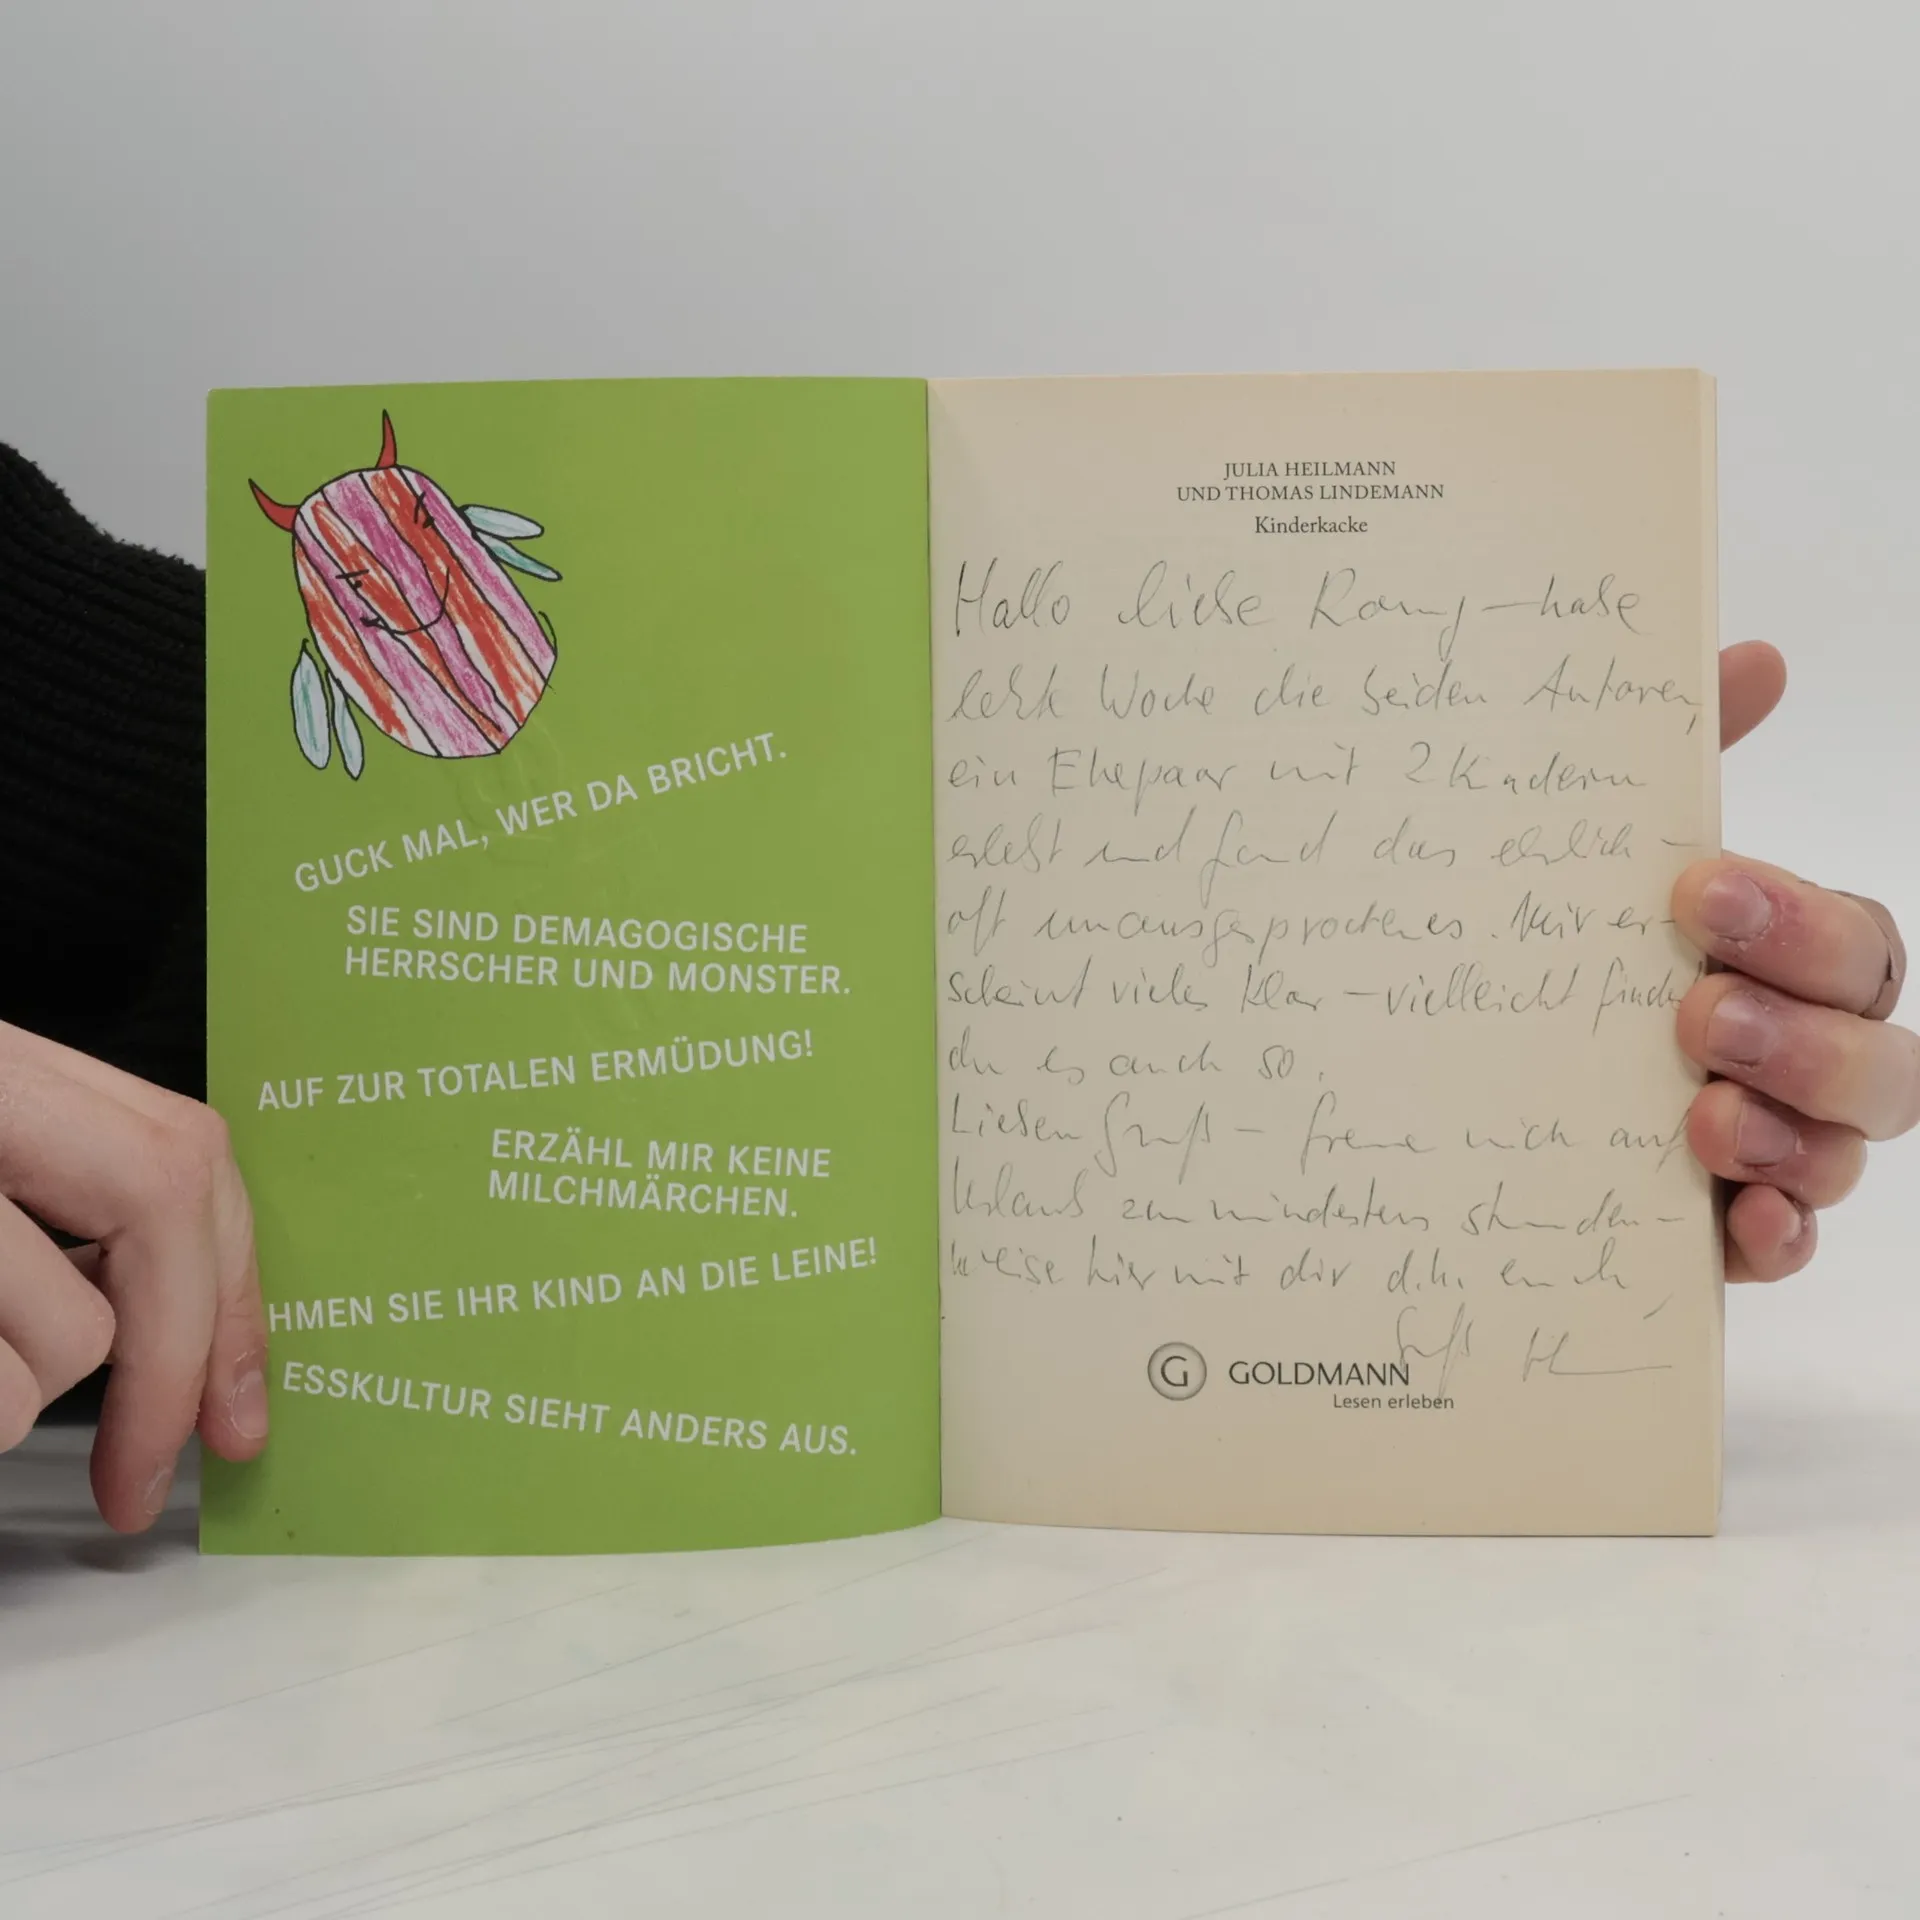 GUCK MAL, WER DA BRICHT.
SIE SIND DEMAGOGISCHE
HERRSCHER UND MONSTER.
AUF ZUR TOTALEN ERMÜDUNG!
ERZÄHL MIR KEINE
MILCHMÄRCHEN.
HMEN SIE IHR KIND AN DIE LEINE!
ESSKULTUR SIEHT ANDERS AUS.
JULIA HEILMANN
UND THOMAS LINDEMANN
Kinderkacke
Hallo liebe – habe
letzte Woche die beiden Autoren,
ein Ehepaar mit 2 Kindern
erlebt und fand das ehrlich –
oft unausgesprochenes. Mir er-
scheint vieles klar – vielleicht findest
du es auch so.
Lieben Gruß – freue mich auf
Urlaub zumindestens stunden-
weise hier mit dir d.h. euch
Gruß H
G GOLDMANN
Lesen erleben